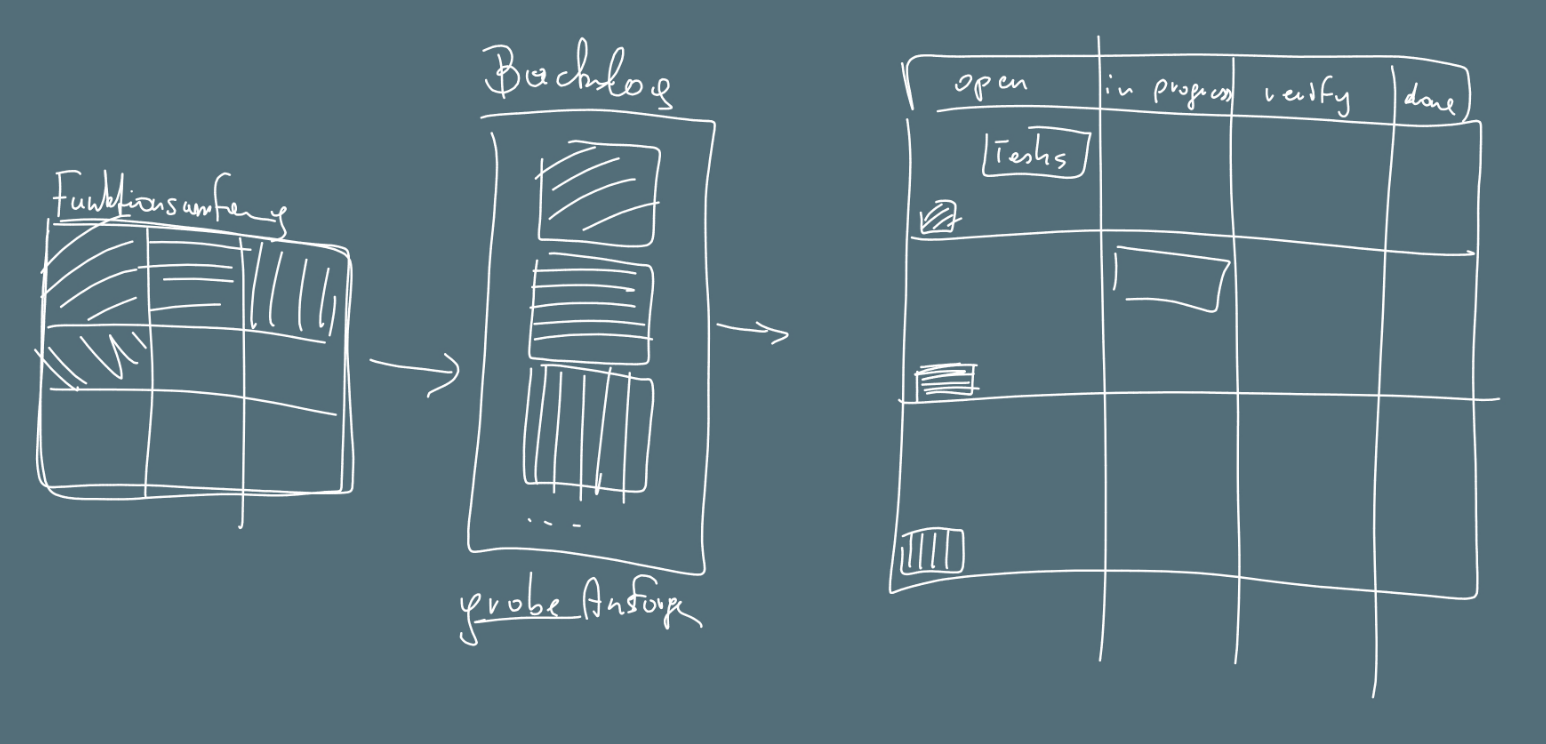 Funktionsumfang
Backlog
grobe Anforge
open
in progress
verify
done
Tasks